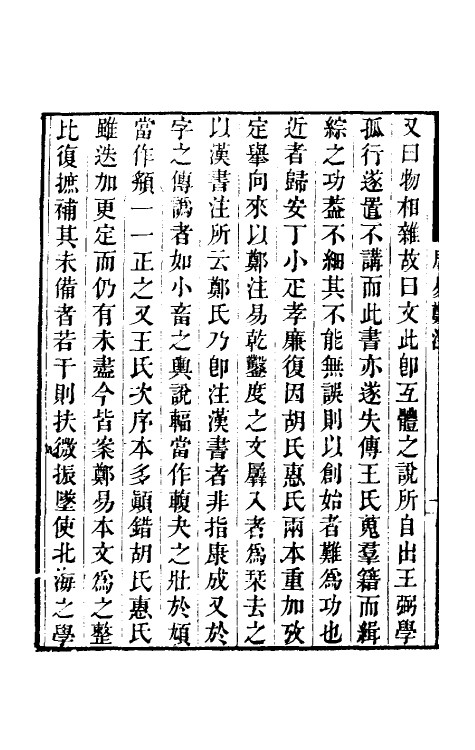 又曰物相雜故曰文此卽互體之說所自出王弼學
孤行遂置不講而此書亦遂失傳王氏蒐羣籍而緝
綜之功葢不細其不能無誤則以創始者難爲功也
近者歸安丁小疋孝廉復因胡氏惠氏兩本重加攷
定舉向來以鄭注易乾鑿度之文羼入者爲栞去之
以漢書注所云鄭氏乃卽注漢書者非指康成又於
字之傳譌者如小畜之輿說輻當作輹夬之壯於頄
當作頯一一正之又王氏次序本多顚錯胡氏惠氏
雖迭加更定而仍有未盡今皆案鄭易本文爲之整
比復摭補其未備者若干則扶微振墜使北海之學
周易鄭注